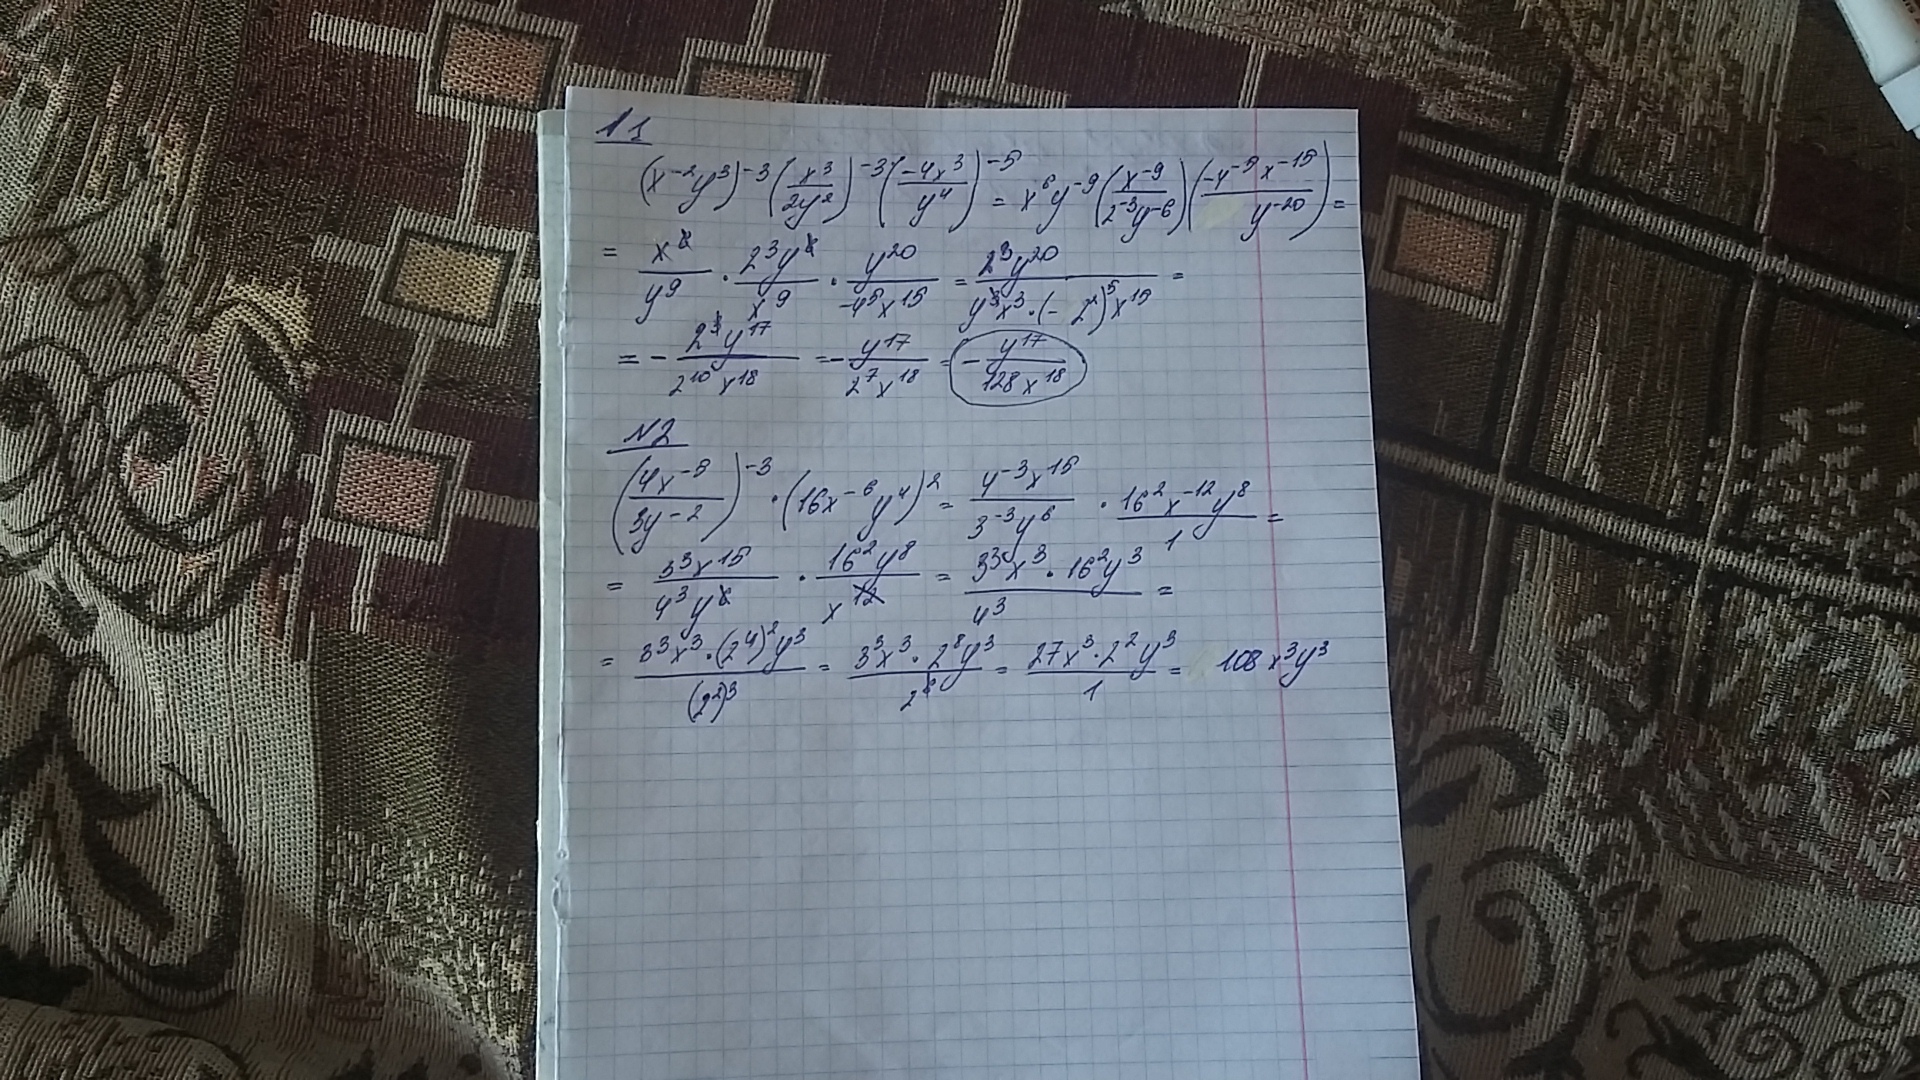 №1
(x^-2 y^3)^-3 (x^3/2y^2)^-3 (-4x^3/y^4)^-5 = x^6 y^-9 (x^-9/2^-3 y^-6) (-4^-5 x^-15/y^-20) =
= x^6/y^9 · 2^3 y^6/x^9 · y^20/-4^5 x^15 = 2^3 y^20/y^3 x^3 · (-2^2)^5 x^15 =
= - 2^3 y^17/2^10 x^18 = - y^17/2^7 x^18 = - y^17/128 x^18
№2
(4x^-5/3y^-2)^-3 · (16x^-6 y^4)^2 = 4^-3 x^15/3^-3 y^6 · 16^2 x^-12 y^8/1 =
= 3^3 x^15/4^3 y^6 · 16^2 y^8/x^12 = 3^3 x^3 · 16^2 y^3/4^3 =
= 3^3 x^3 · (2^4)^2 y^3/(2^2)^3 = 3^3 x^3 · 2^8 y^3/2^6 = 27x^3 · 2^2 y^3/1 = 108 x^3 y^3